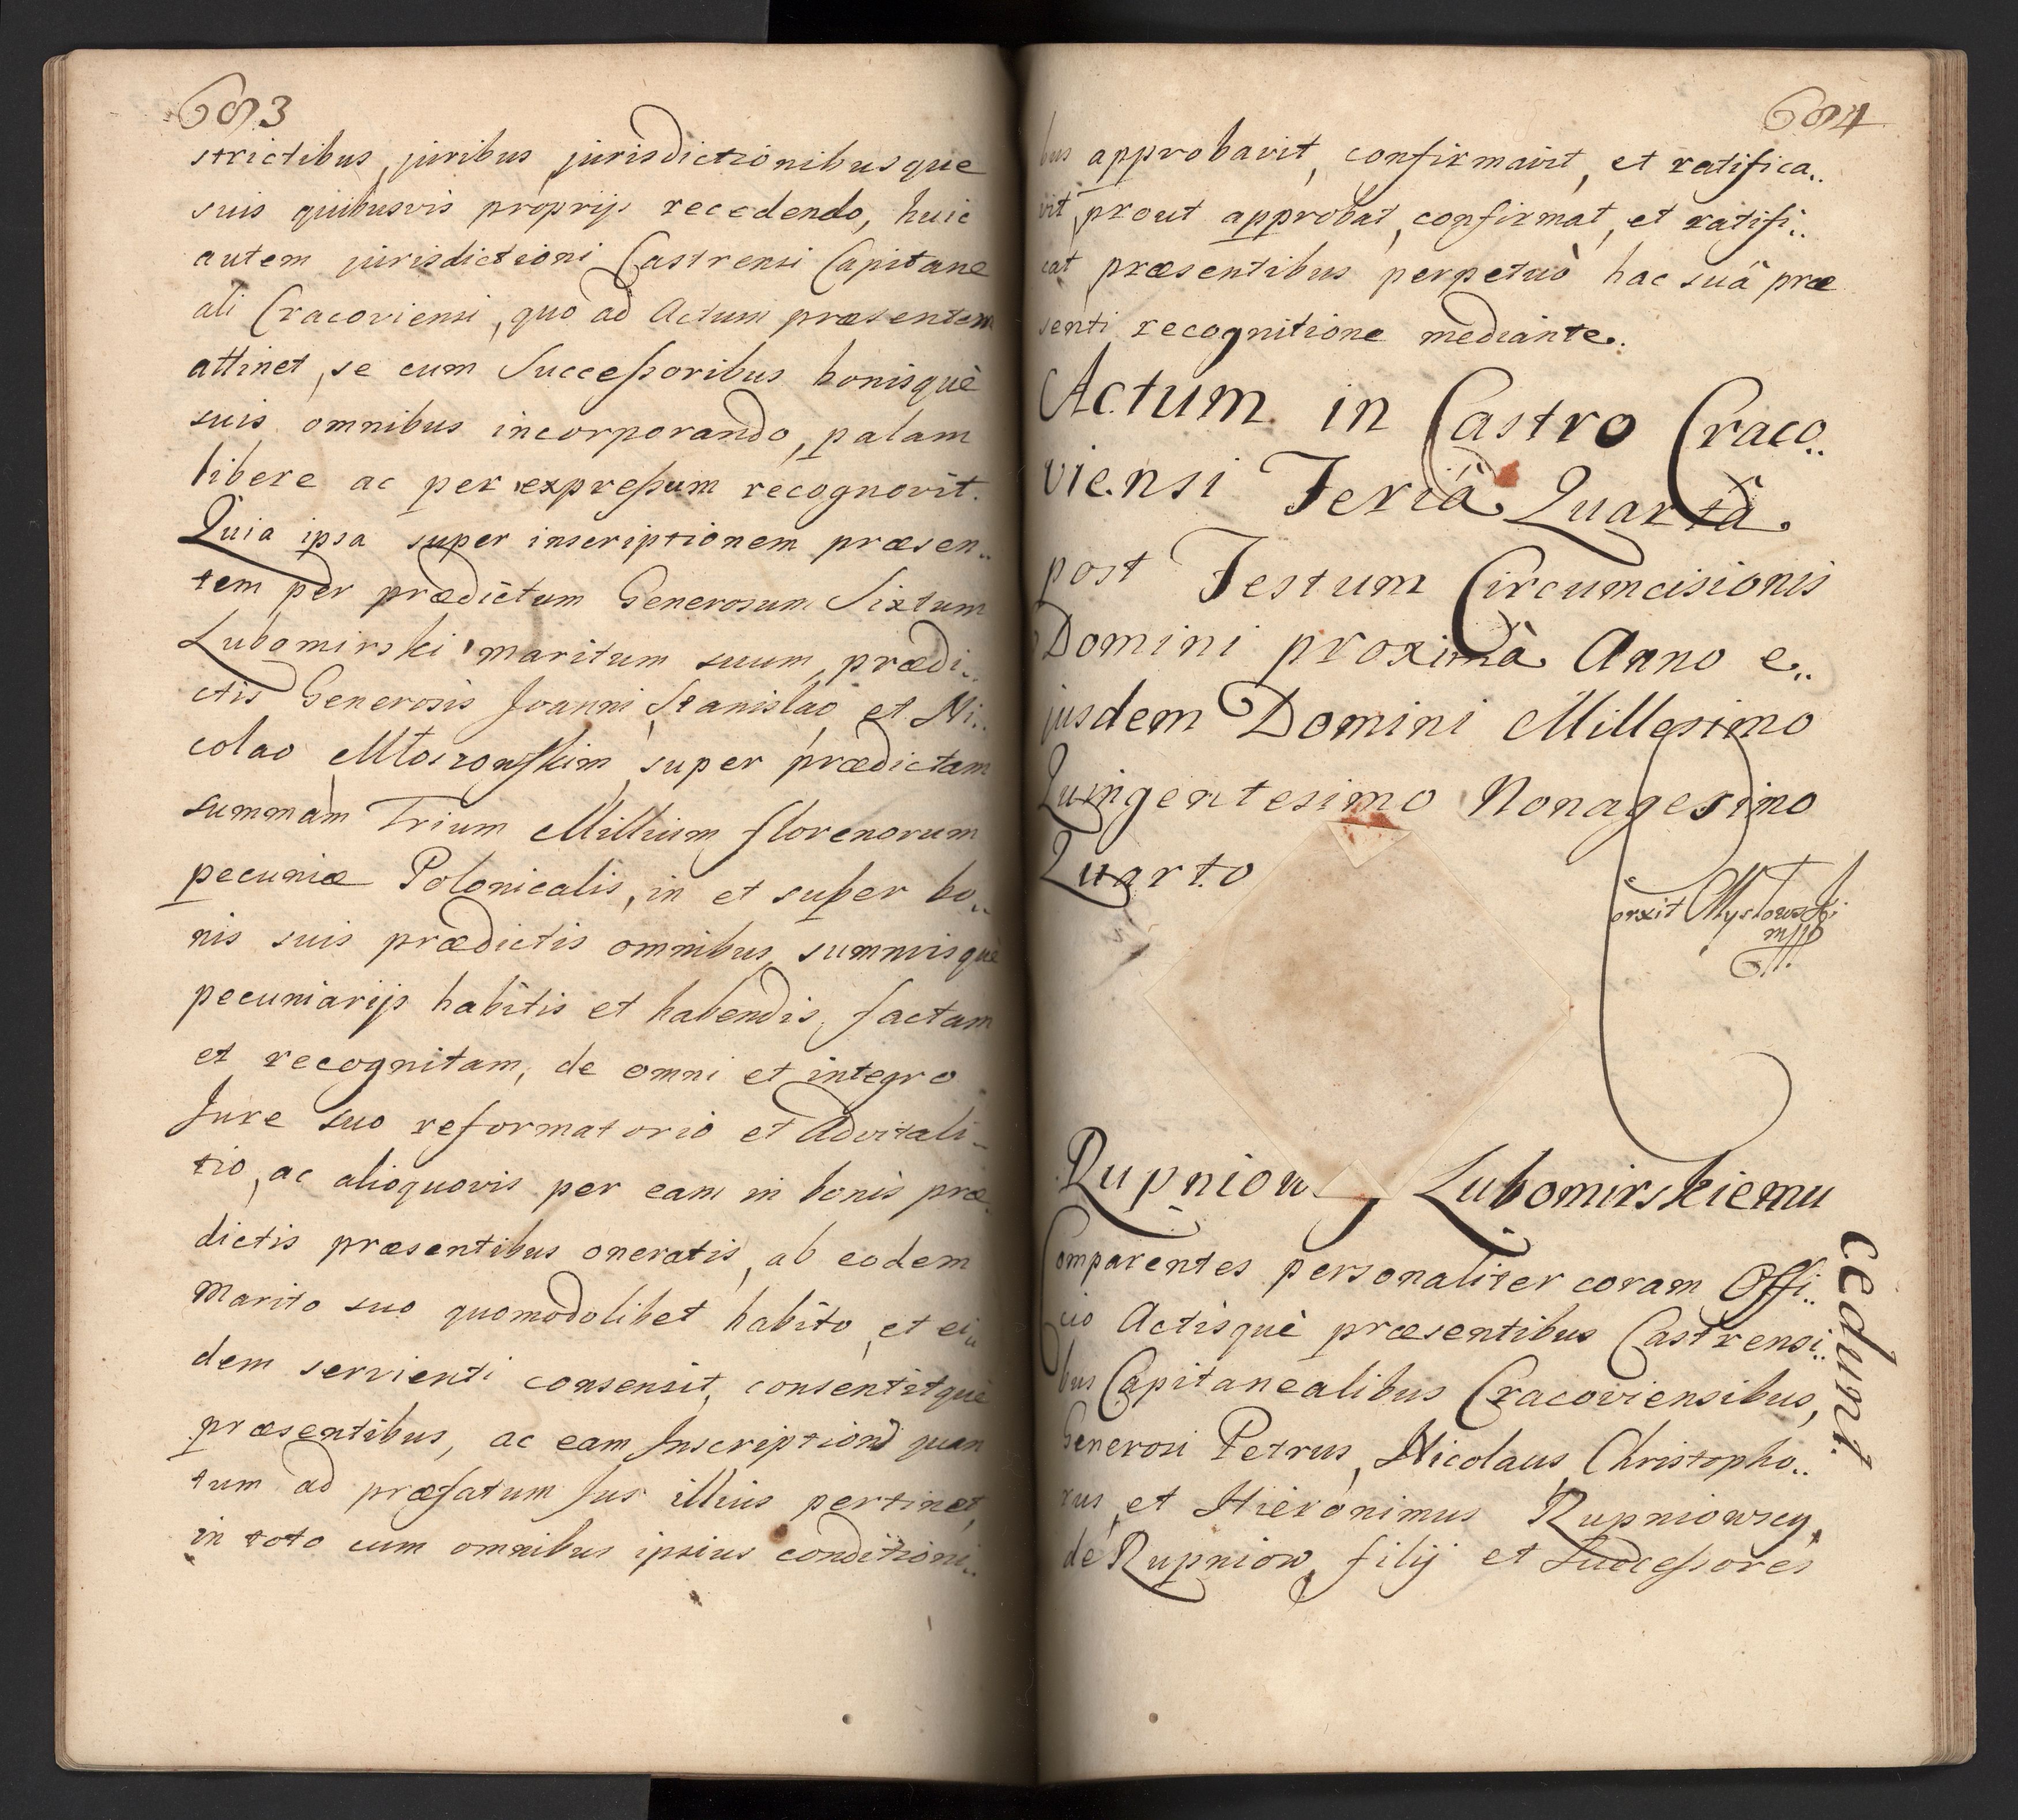 603
strictibus, juribus jurisdictionibusque
suis quibusvis proprijs recedendo, huic
autem jurisdictioni Castrensi Capitane
ali Cracoviensi, quo ad Actum præsentem
attinet, se cum Successoribus bonisquè
suis omnibus incorporando, palam
libere ac per expressum recognovit.
Quia ipsa super inscriptionem præsen..
tem per prædictum Generosum Sixtum
Lubomirski maritum suum, prædi..
ctis Generosis Joanni Stanislao, et Ni..
colao Młoszowskim, super prædictam
summam Trium Millium florenorum
pecuniæ Polonicalis, in et super bo..
nis suis prædictis omnibus, summisquè
pecuniarijs habitis et habendis, factam
et recognitam, de omni et integro
Jure suo reformatorio et Advitali-
tio, ac alioquovis per eam in bonis præ
dictis præsentibus oneratis, ab eodem
Marito suo quomodolibet habito, et ei..
dem servienti consensit, consentitquè
præsentibus, ac eam Inscriptionem quan
tum ad præfatum Jus illius pertinet,
in toto cum omnibus ipsius conditioni..
604
bus approbavit, confirmavit, et ratifica..
vit, prout approbat, confirmat, et ratifi..
cat præsentibus perpetuò hac suâ præ
senti recognitione mediante.
Actum in Castro Craco..
viensi Feriâ Quartâ
post Festum Circumcisionis
Domini proximâ Anno e..
jusdem Domini Millesimo
Quingentesimo Nonagesimo
Quarto
Mysłowski
mpp
Rupniow Lubomirskiemu
cedunt.
Comparentes personaliter coram Offi..
cio Actisquè præsentibus Castrensi..
bus Capitanealibus Cracoviensibus,
Generosi Petrus, Nicolaus, Christopho..
rus, et Hieronimus Rupniowscy,
de Rupniow, filij et Successores